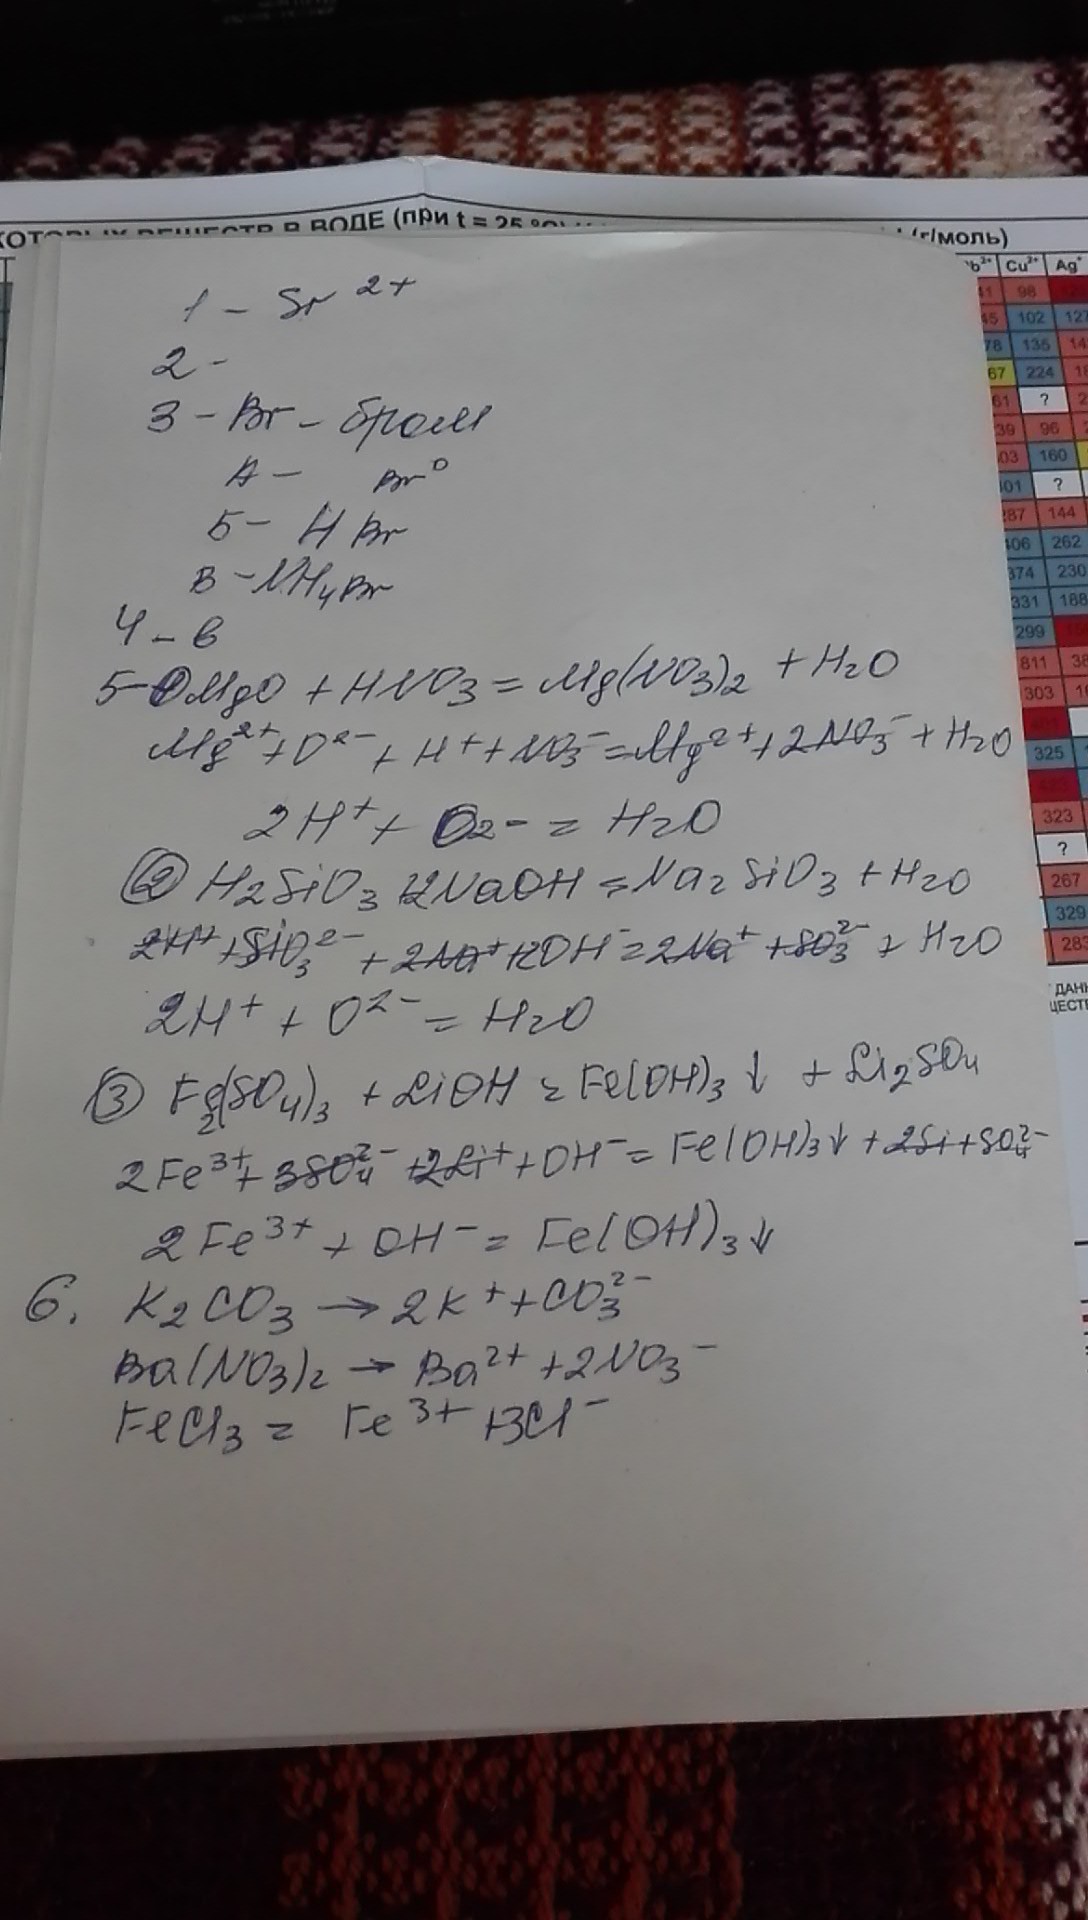 В ВОДЕ (при t = 25
(г/моль)
Cu²⁺ Ag⁺
98
102 127
135
67 224
?
39 96
160
?
287 144
262
374 230
331 188
299
811
303
325
323
?
267
329
283
1 - Sr 2+
2 -
3 - Br - бром
А - Br⁰
Б - H Br
В - NH₄Br
4 - в
5 - ① MgO + HNO₃ = Mg(NO₃)₂ + H₂O
Mg²⁺ + O²⁻ + H⁺ + NO₃⁻ = Mg²⁺ + 2NO₃⁻ + H₂O
2H⁺ + O₂- = H₂O
② H₂SiO₃ + 2NaOH = Na₂SiO₃ + H₂O
2H⁺ + SiO₃²⁻ + 2Na⁺ + 2OH⁻ = 2Na⁺ + SO₃²⁻ + H₂O
2H⁺ + O²⁻ = H₂O
③ Fe₂(SO₄)₃ + LiOH = Fe(OH)₃↓ + Li₂SO₄
2Fe³⁺ + 3SO₄²⁻ + 2Li⁺ + OH⁻ = Fe(OH)₃↓ + 2Si + SO₄²⁻
2Fe³⁺ + OH⁻ = Fe(OH)₃↓
6. K₂CO₃ → 2K⁺ + CO₃²⁻
Ba(NO₃)₂ → Ba²⁺ + 2NO₃⁻
FeCl₃ = Fe³⁺ + 3Cl⁻